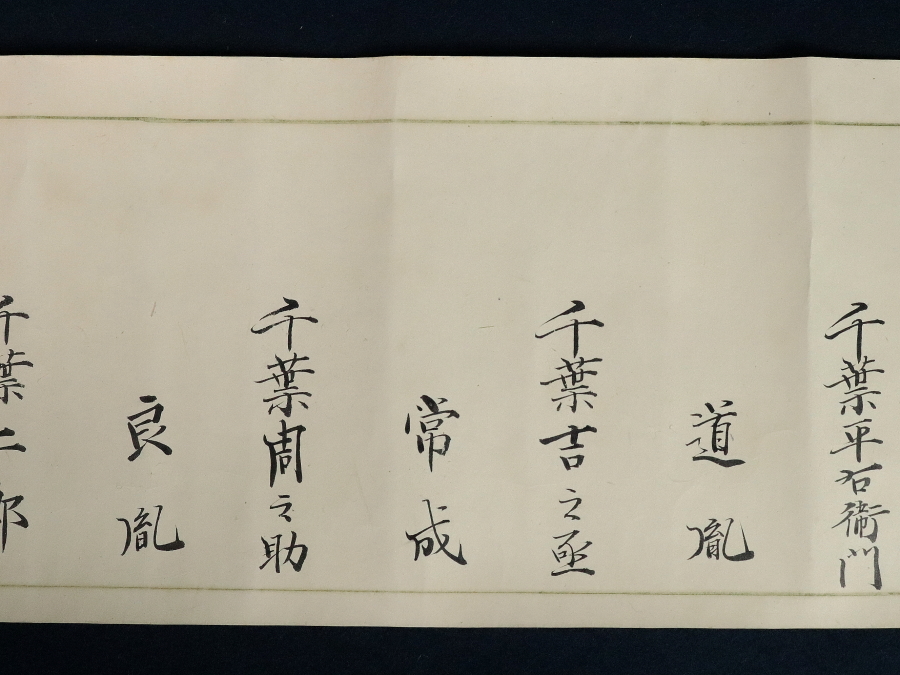 千葉平右衛門
道胤
千葉吉之丞
常成
千葉周之助
良胤
千葉二郎